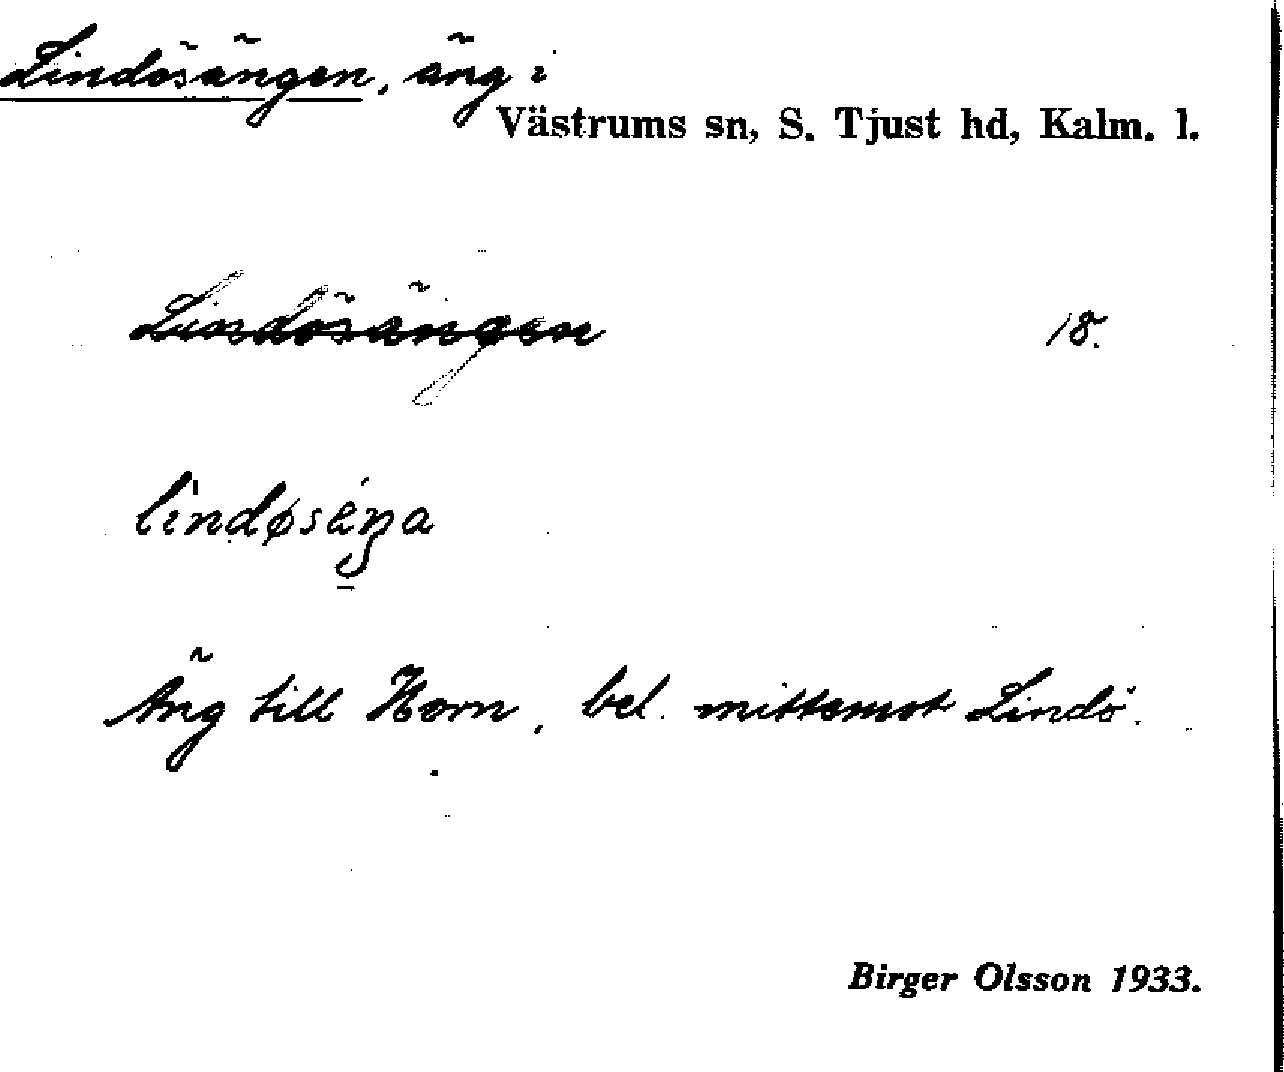 Lindösängen, äng i
Västrums sn, S. Tjust hd, Kalm. l.
Lindösängen 18.
lindøséŋa
Äng till Horn, bel. mittemot Lindö.
Birger Olsson 1933.